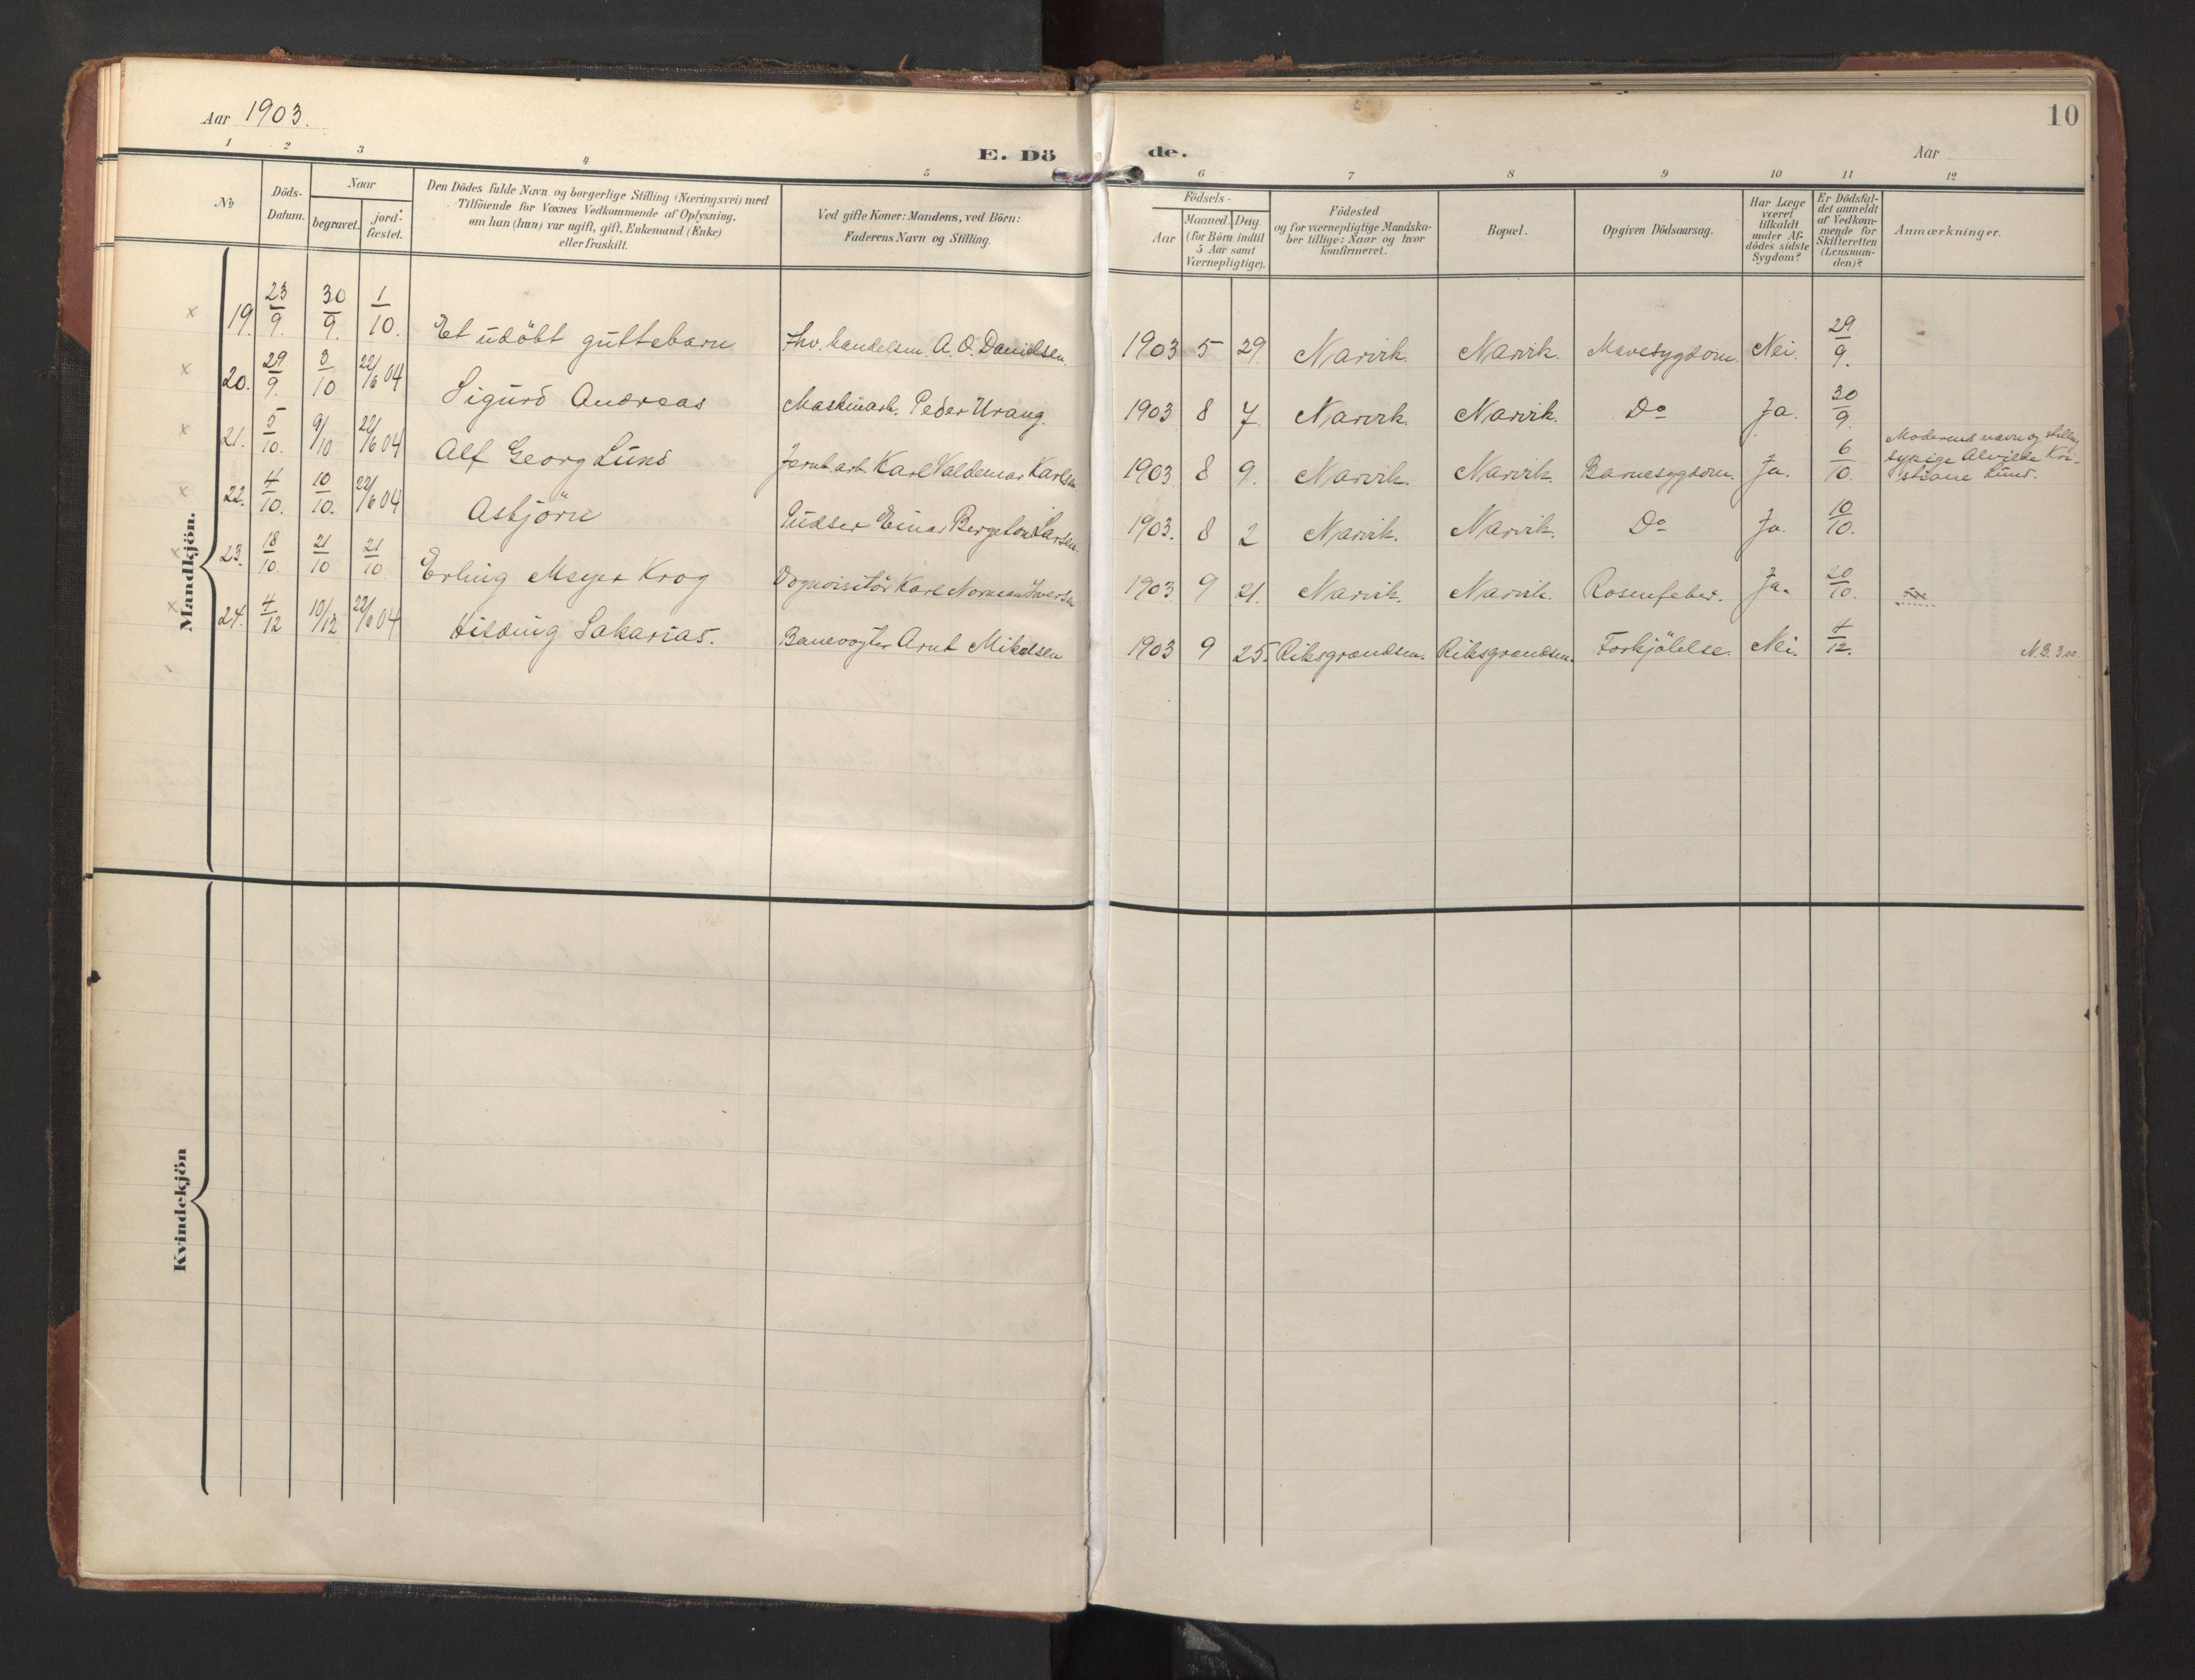 Aar 1903.
10
E. Dö de.
Aar
1 2 3 4 5 6 7 8 9 10 11 12
№
Döds-Datum.
Naar
begravet.
jord-fæstet.
Den Dödes fulde Navn og borgerlige Stilling (Næringsvei) med
Tilföiende for Voxnes Vedkommende af Oplysning,
om han (hun) var ugift, gift, Enkemand (Enke)
eller fraskilt.
Ved gifte Koner: Mandens, ved Börn:
Faderens Navn og Stilling.
Födsels-
Aar
Maaned. Dag.
(for Börn indtil
5 Aar samt
Værnepligtige).
Födested
og for værnepligtige Mandska-
ber tillige: Naar og hvor
konfirmeret.
Bopæl.
Opgiven Dödsaarsag.
Har Læge
været
tilkaldt
under Af-
dödes sidste
Sygdom?
Er Dödsfal-
det anmeldt
af Vedkom-
mende for
Skifteretten
(Lensman-
den)?
Anmærkninger.
Mandkjön.
x 19. 23/9. 30/9. 1/10. Et udöbt guttebarn fhv. handelsm. A. O. Danielsen. 1903 5 29. Narvik. Narvik. Mavesygdom. Nei. 29/9.
x 20. 29/9. 3/10 22/6 04 Sigurd Andreas Maskinarb. Peder Urang. 1903 8 7. Narvik. Narvik. Do Ja. 30/9.
x 21. 5/10. 9/10 22/6 04 Alf Georg Lund Jernb.arb. Karl Valdemar Karlsen 1903 8 9. Narvik. Narvik. Barnesygdom. Ja. 6/10. Moderens navn og stilling
syrige Alvilde Kri-
stiane Lund.
x 22. 4/10. 10/10. 22/6 04 Asbjörn Pudser Einar Bergeton Larsen. 1903. 8 2 Narvik. Narvik. Do Ja. 10/10.
x 23. 18/10. 21/10 21/10 Erling Meyer Krog Vognvisitör Karl Norman Iversen 1903 9 21. Narvik. Narvik. Rosenfeber. Ja. 20/10.
x 24. 4/12 10/12 22/6 04 Hilding Sakarias. Banevogter Arnt Mikalsen 1903 9 25. Riksgrændsen. Riksgrændsen. Forkjölelse. Nei. 4/12. N.B. 3.00.
Kvindekjön